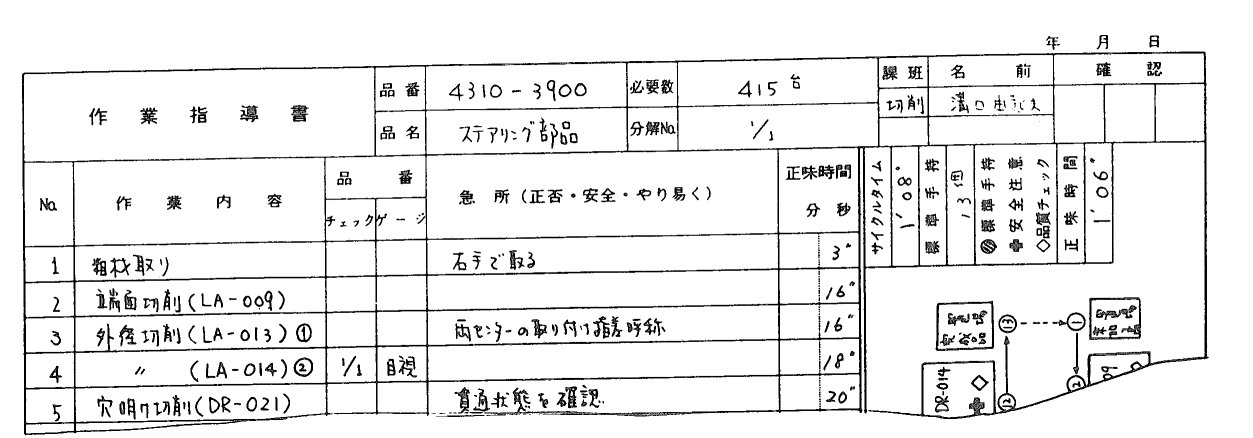 年 月 日
作業指導書
品番 4310-3900 必要数 415台
品名 ステアリング部品 分解No. 1/1
課班 名前 確認
切削 溝口
No. 作業内容 品番 チェック ゲージ 急所(正否・安全・やり易く) 正味時間 分 秒
1 粗材取り 右手で取る 3"
2 端面切削(LA-009) 16"
3 外径切削(LA-013)① 両センターの取り付け指差呼称 16"
4 〃 (LA-014)② 1/1 目視 18"
5 穴明け切削(DR-021) 貫通状態を確認 20"
サイクルタイム 1'08"
標準手持 13個
標準手持
安全注意
品質チェック
正味時間 1'06"
⑬ ①
DR-014
⑫